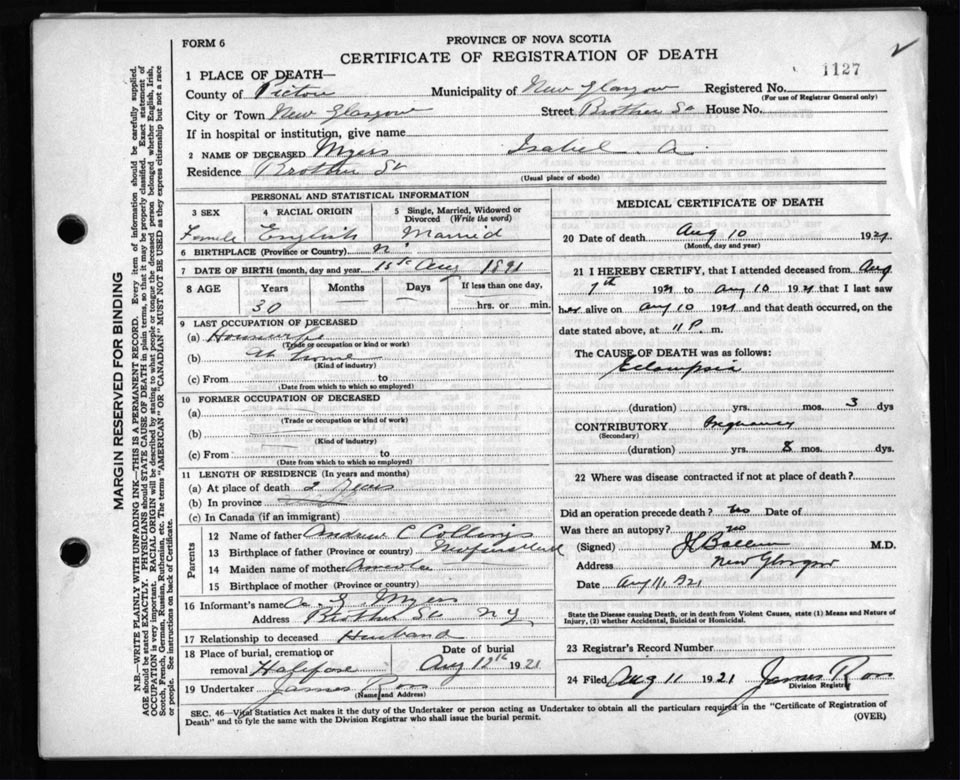 FORM 6
PROVINCE OF NOVA SCOTIA
CERTIFICATE OF REGISTRATION OF DEATH
1127
1 PLACE OF DEATH—
County of Pictou Municipality of New Glasgow Registered No.
(For use of Registrar General only)
City or Town New Glasgow Street Brother St House No.
If in hospital or institution, give name
2 NAME OF DECEASED Myers Isabel A.
Residence Brother St
(Usual place of abode)
PERSONAL AND STATISTICAL INFORMATION
3 SEX 4 RACIAL ORIGIN 5 Single, Married, Widowed or Divorced (Write the word)
Female English Married
6 BIRTHPLACE (Province or Country)
7 DATE OF BIRTH (month, day and year) 15th Aug 1891
8 AGE Years Months Days If less than one day,
30 hrs. or min.
9 LAST OCCUPATION OF DECEASED
(a) Housewife
(Trade or occupation or kind or work)
(b) At home
(Kind of industry)
(c) From to
(Date from which to which so employed)
10 FORMER OCCUPATION OF DECEASED
(a)
(Trade or occupation or kind of work)
(b)
(Kind of industry)
(c) From to
(Date from which to which so employed)
11 LENGTH OF RESIDENCE (In years and months)
(a) At place of death 2 Years
(b) In province
(c) In Canada (if an immigrant)
Parents
12 Name of father Andrew C Collings
13 Birthplace of father (Province or country)
14 Maiden name of mother
15 Birthplace of mother (Province or country)
16 Informant's name Myers
Address Brother St N G
17 Relationship to deceased Husband
18 Place of burial, cremation or removal Date of burial
Halifax Aug 12th 1921
19 Undertaker James Ross
(Name and Address)
MEDICAL CERTIFICATE OF DEATH
20 Date of death Aug 10 1921
(Month, day and year)
21 I HEREBY CERTIFY, that I attended deceased from Aug
7th 1921 to Aug 10 1921 that I last saw
her alive on Aug 10 1921 and that death occurred, on
date stated above, at 11 P. m.
The CAUSE OF DEATH was as follows:
Eclampsia
(duration) yrs. mos. 3 dys
CONTRIBUTORY Pregnancy
(Secondary)
(duration) yrs. 8 mos. dys
22 Where was disease contracted if not at place of death?
Did an operation precede death? Yes Date of
Was there an autopsy? no
(Signed) M.D.
Address New Glasgow
Date Aug 11, 1921
State the Disease causing Death, or in death from Violent Causes, state (1) Means and Nature of
Injury, (2) whether Accidental, Suicidal or Homicidal.
23 Registrar's Record Number
24 Filed Aug 11 1921 James Ross
Division Registrar
SEC. 46—Vital Statistics Act makes it the duty of the Undertaker or person acting as Undertaker to obtain all the particulars required in the "Certificate of Registration of
Death" and to fyle the same with the Division Registrar who shall issue the burial permit.
(OVER)
MARGIN RESERVED FOR BINDING
N.B.—WRITE PLAINLY WITH UNFADING INK—THIS IS A PERMANENT RECORD. Every item of information should be carefully supplied.
AGE should be stated EXACTLY. PHYSICIANS should STATE CAUSE OF DEATH in plain terms, so that it may be properly classified. Exact statement of
OCCUPATION is very important. RACIAL ORIGIN will be described by stating to what people or tongue the deceased person belonged whether English, Irish,
Scotch, French, German, Russian, Ruthenian, etc. The terms "AMERICAN" OR "CANADIAN" MUST NOT BE USED as they express citizenship but not a race
or people. See instructions on back of Certificate.